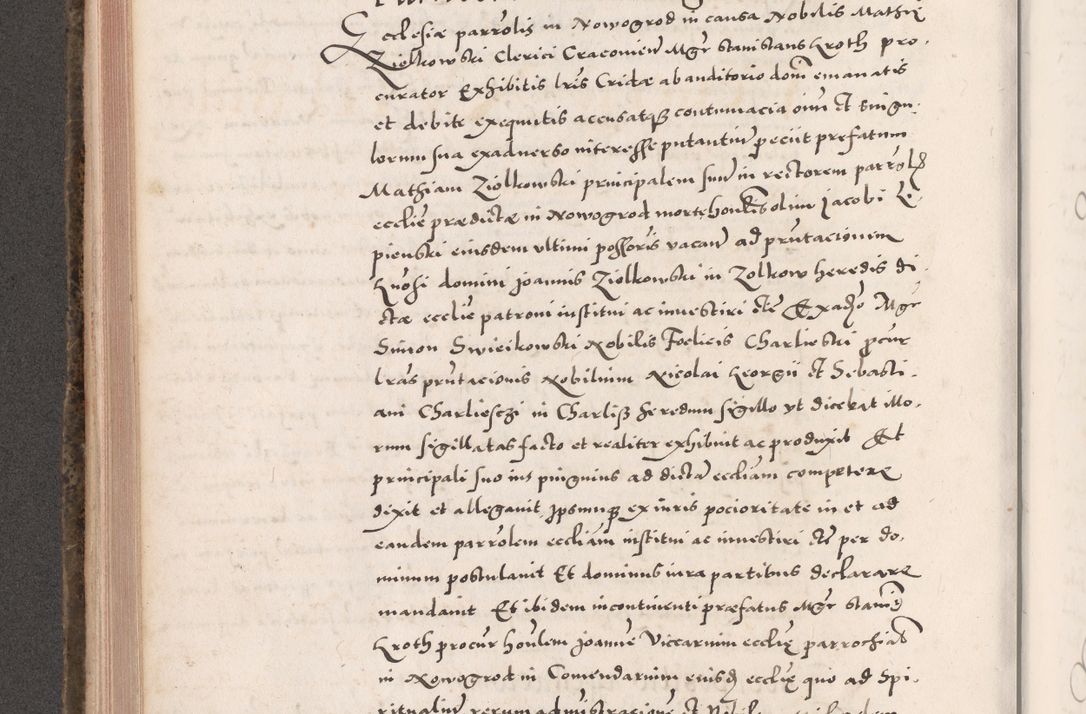 Ecclesiæ parrolis in Nowogrod in causa Nobilis Mathię
Ziolkowski Clerici Cracovien Mgr Stanislaus Kroth pro-
curator Exhibitis lris Cridæ ab auditorio domini emanatis
et debite exequutis accusatqz contumacia oim et singu-
lorum sua ex adverso interesse putantium peciit prefatum
Mathiam Ziolkowski principalem suum in rectorem parrol
ecclie prædictæ in Nowogrod morte honl olim Jacobi Li-
pienski eiusdem ultimi possoris vacan ad prntacionem
gnosi domini Joannis Ziolkowski in Zolkow heredis di-
ctæ ecclie patroni institui ac investiri etc Ex adso Mgr
Simon Swieikowski Nobilis Foelicis Charlieski procur
lras prntacionis Nobilium Nicolai Georgii et Sebasti-
ani Charlieschi in Charlisz heredum sigillo ut dicebat illo-
rum sigillatas facto et realiter exhibuit ac produxit Et
principali suo ius pinguius ad dictam eccliam competere
dixit et allegavit Ipsumqz ex iuris pocioritate in et ad
eandem parrolem eccliam institui ac investiri etc per do-
minum postulavit Et dominus iura partibus declarare
mandavit Et ibidem incontinenti præfatus Mgr Stanis
Kroth procur honlem Joannem Viccarium ecclię parrochial
in Nowogrod in Comendarium eiusd ecclię quo ad spi-
ritualium rerum administracione et